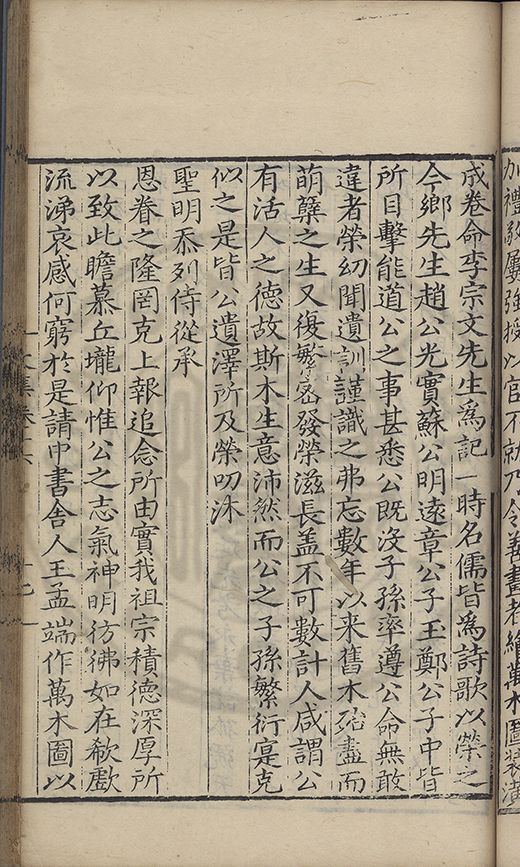 加禮敦屢強授以官不就乃令善畫者繪萬木圖裝潢
成卷命李宗文先生為記一時名儒皆為詩歌以榮之
今鄉先生趙公光實蘇公明遠章公子玉鄭公子中皆
所目擊能道公之事甚悉公既沒子孫率遵公命無敢
違者榮幼聞遺訓謹識之弗忘數年以来舊木殆盡而
萌櫱之生又復繁密發榮滋長盖不可數計人咸謂公
有活人之德故斯木生意沛然而公之子孫繁衍寔克
似之是皆公遺澤所及榮叨沐
聖明忝列侍從承
恩眷之隆罔克上報追念所由實我祖宗積德深厚所
以致此瞻慕丘壠仰惟公之志氣神明彷彿如在欷歔
流涕哀感何窮於是請中書舍人王孟端作萬木圖以
文集卷十六